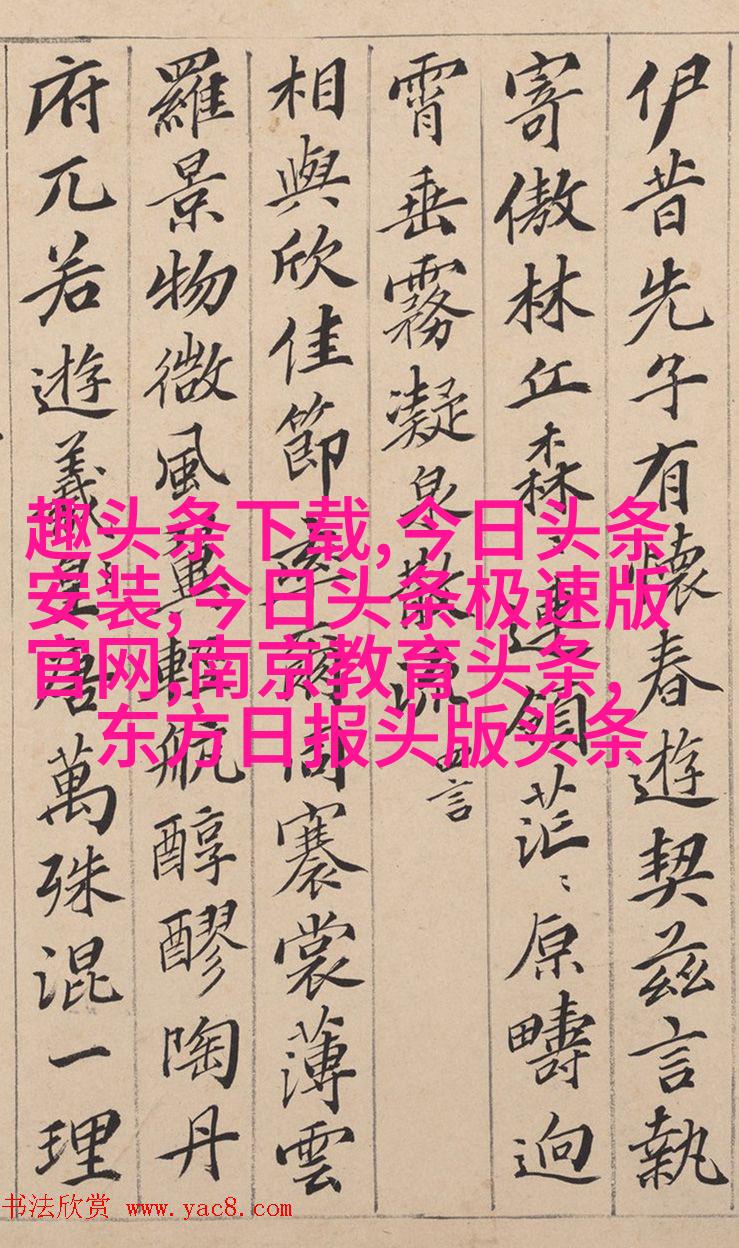 伊昔先子有懷春遊契茲言執
寄傲林丘森〻連領茫〻原疇迥
霄垂霧凝泉散流 四言
相與欣佳節率爾同褰裳薄雲
羅景物微風翼輕航醇醪陶丹
府兀若遊羲皇唐萬殊混一理
趣头条下载,今日头条
安装,今日头条极速版
官网,南京教育头条,
东方日报头版头条
书法欣赏 www.yac8.com